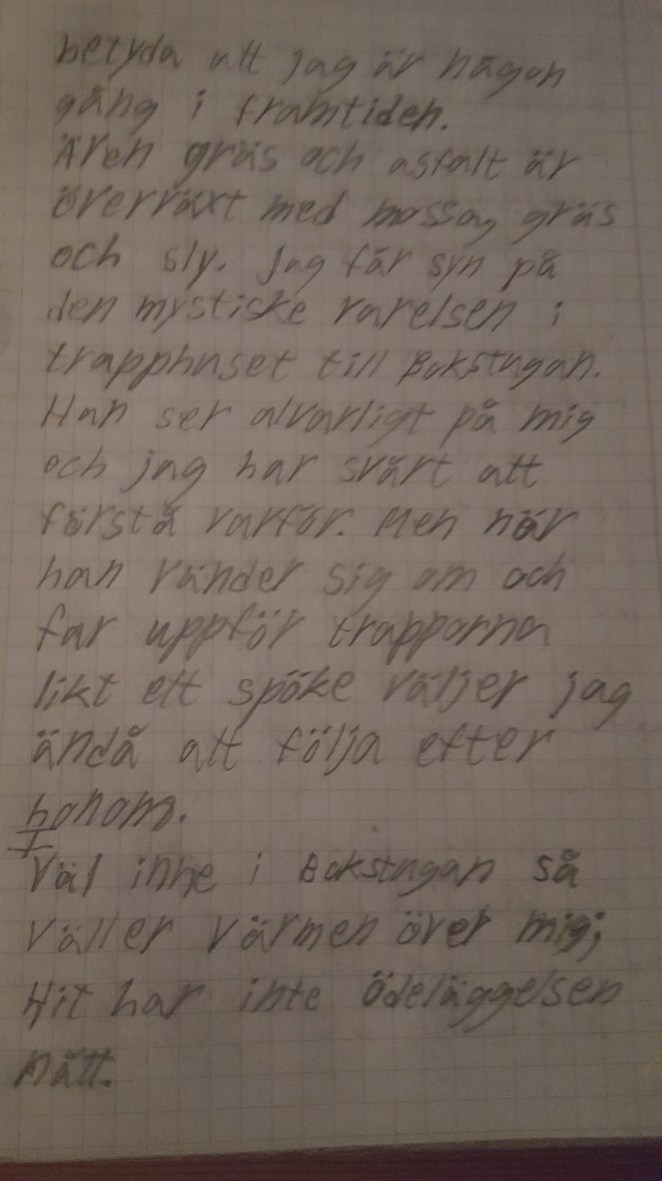 betyda att jag är någon
gång i framtiden.
Även gräs och asfalt är
överväxt med mossa, gräs
och sly. Jag får syn på
den mystiske varelsen i
trapphuset till Bokstugan.
Han ser alvarligt på mig
och jag har svårt att
förstå varför. Men när
han vänder sig om och
far uppför trapporna
likt ett spöke väljer jag
ändå att följa efter
honom.
Väl inne i Bokstugan så
väller värmen över mig;
Hit har inte ödeläggelsen
nått.